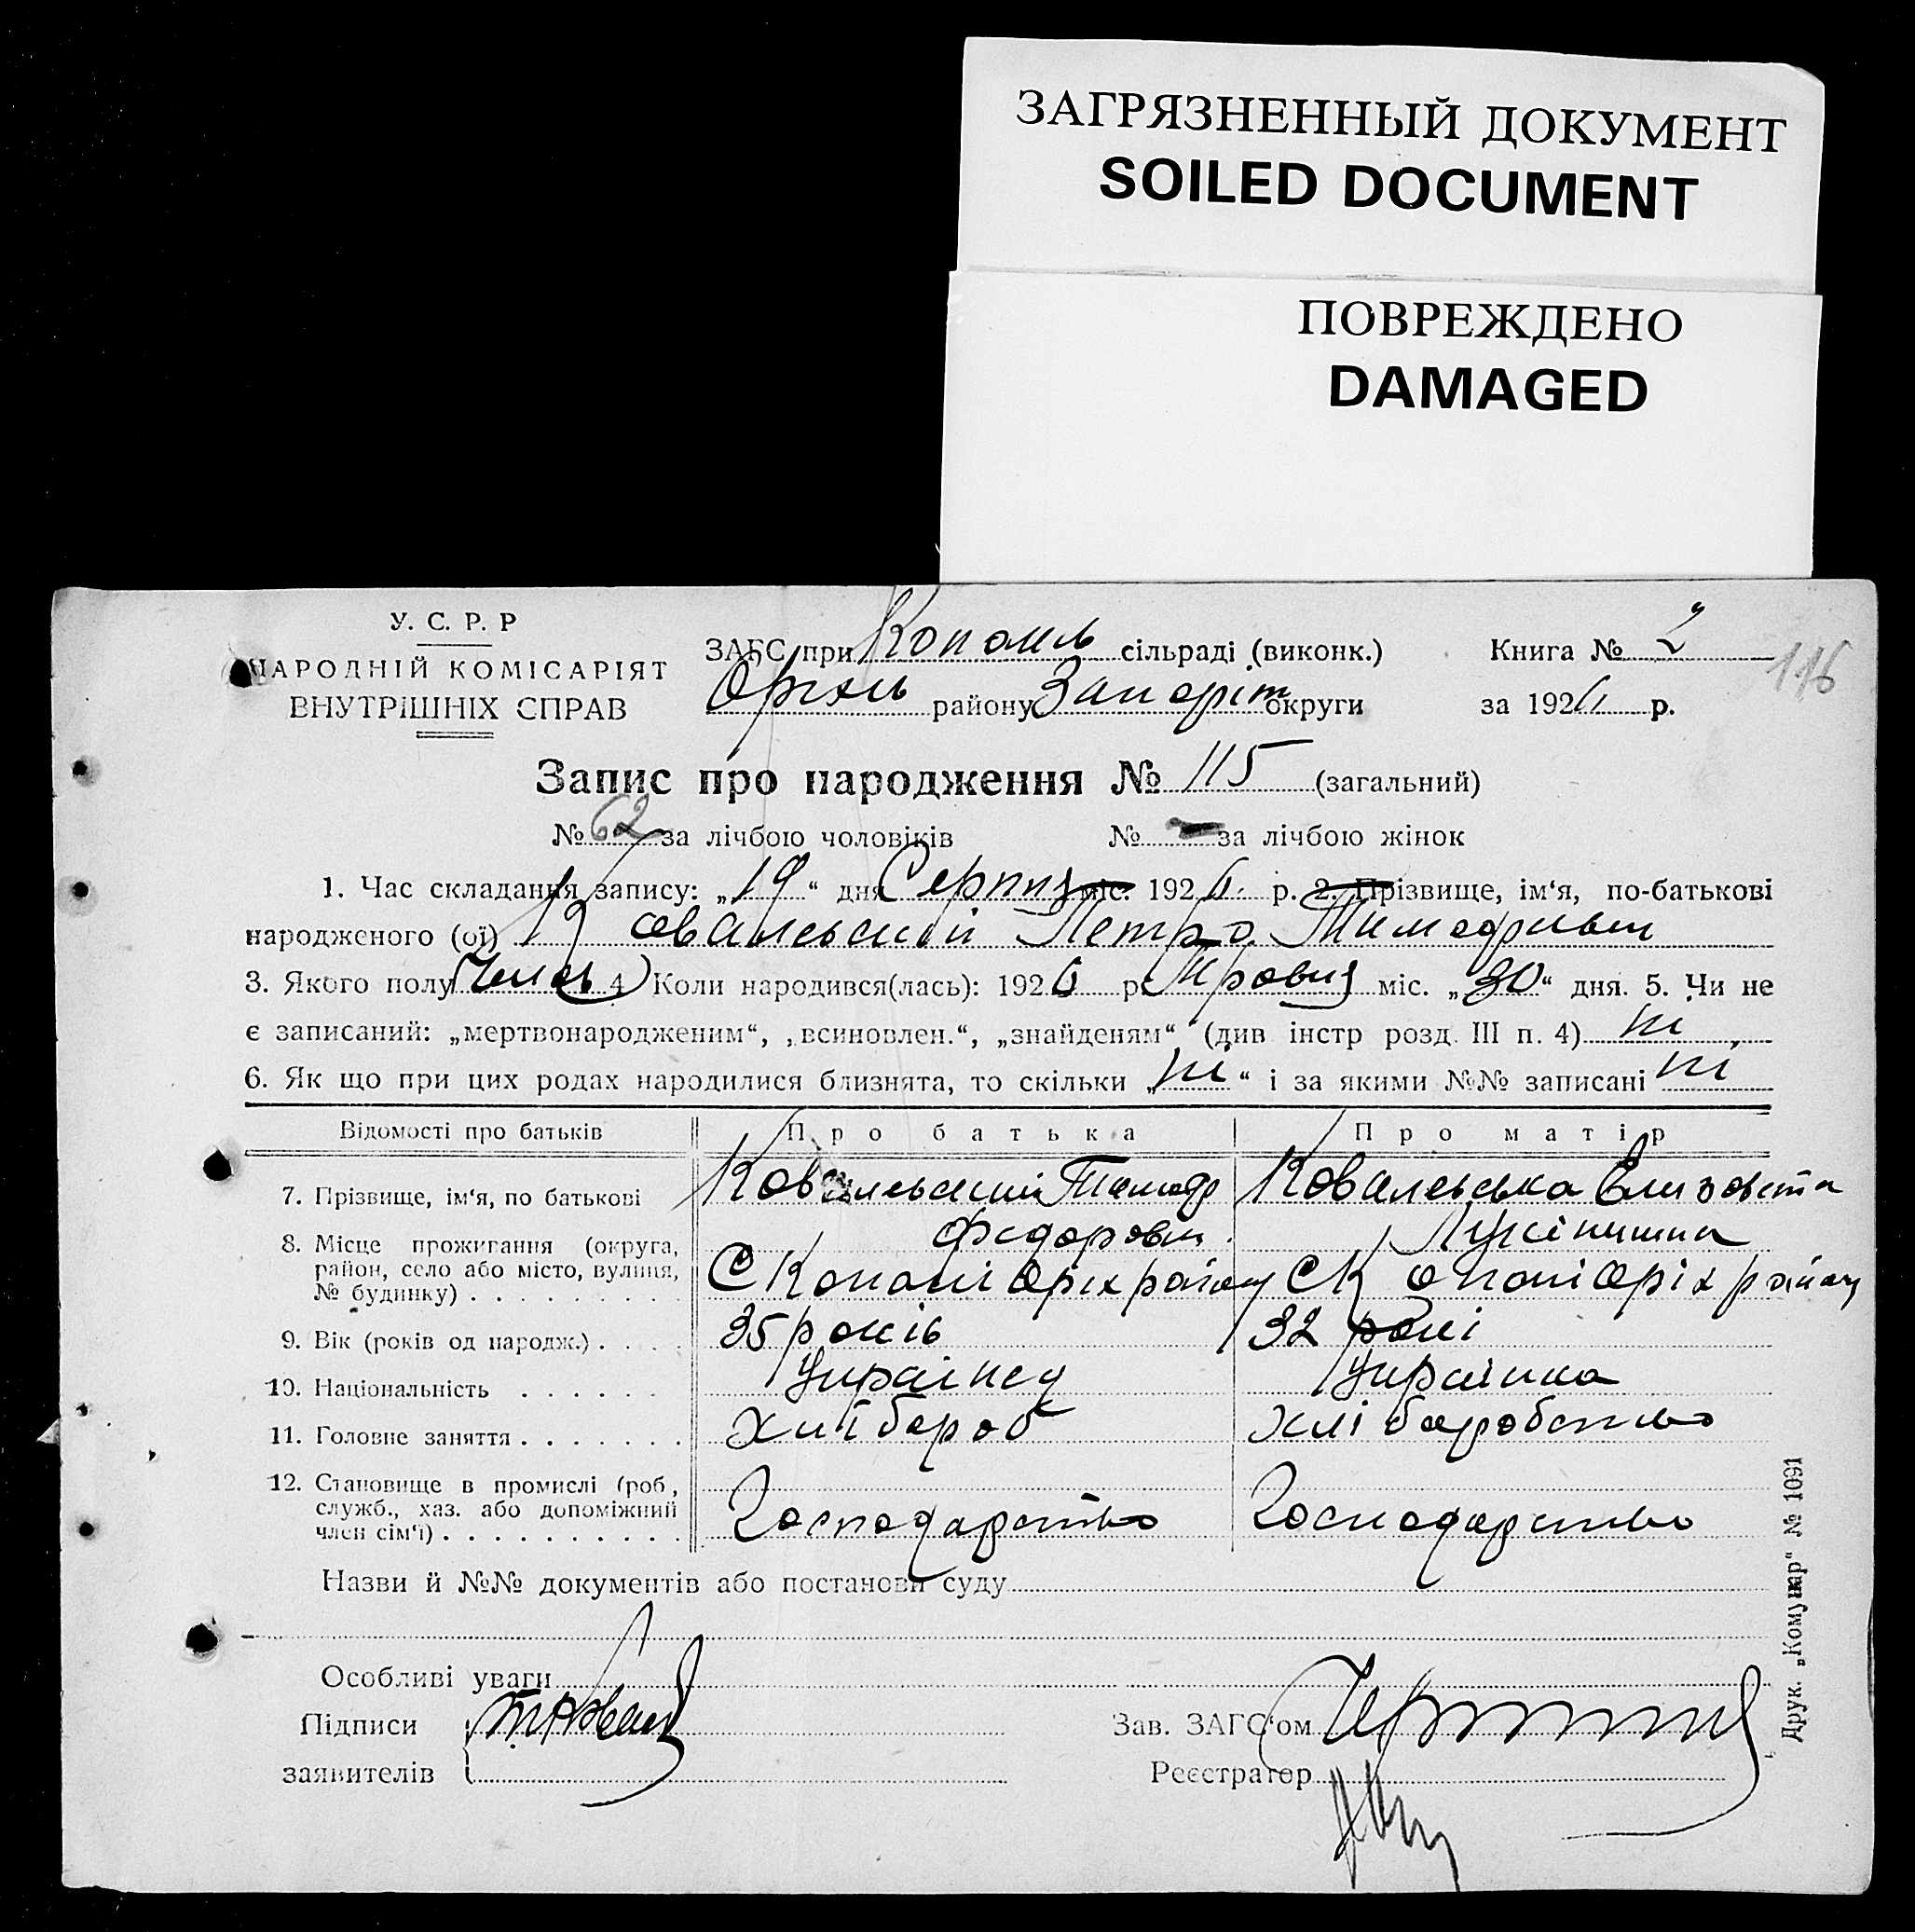 ЗАГРЯЗНЕННЫЙ ДОКУМЕНТ
SOILED DOCUMENT
ПОВРЕЖДЕНО
DAMAGED
У. С. Р. Р
НАРОДНІЙ КОМІСАРІЯТ
ВНУТРІШНІХ СПРАВ
ЗАГС при Копань сільраді (виконк.)
Оріхль району Запоріж округи
Книга № 2
за 1926 р.
116
Запис про народження № 115 (загальний)
№ 62 за лічбою чоловіків № — за лічбою жінок
1. Час складання запису: „19“ дня Серпня міс. 1926 р. 2. Прізвище, ім‘я, по-батькові
народженого (ої) Ковалевський Петро
3. Якого полу 4 Коли народився(лась): 1926 р. міс. „30“ дня. 5. Чи не
є записаний: „мертвонародженим“, „всиновлен.“, „знайденям“ (див інстр розд. III п. 4) ні
6. Як що при цих родах народилися близнята, то скільки „ні“ і за якими №№ записані ні
Відомості про батьків Про батька Про матір
7. Прізвище, ім‘я, по батькові Ковалевський Тимоф Ковалевська Елизовета
Федорович
8. Місце прожигання (округа, район, село або місто, вулиця, № будинку) С Копані Оріх району С Копані Оріх району
9. Вік (років од народж.) 35 років 32 рокі
10. Національність Українец Українка
11. Головне заняття Хлібороб Хліборобство
12. Становище в промислі (роб, служб., хаз. або допоміжний член сім‘ї) Господарство Господарство
Назви й №№ документів або постанови суду
Особливі уваги
Підписи
заявителів
Зав. ЗАГС‘ом
Реєстратор
Друк. „Комунар“ № 1091